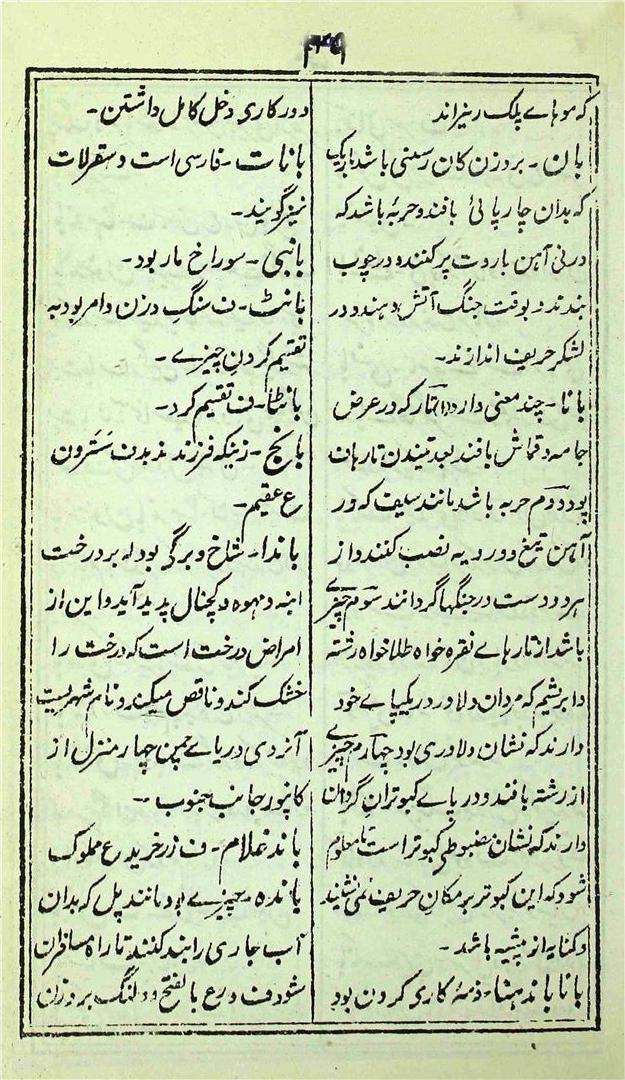 که موہاے پلک ریزاند
بان - بروزن کان رسنی باشد باریک
که بدان چارپائی بافند و حربهٔ باشد که
درنی آهن باروت پر کنند و در چوب
بندند و بوقت جنگ آتش دهند و در
لشکر حریف اندازند -
بانا - چند معنی دارد (۱) تار که در عرض
جامه و قماش بافند بعد تنیدن تارهان
پود دوم حربه باشد مانند سیف که در
آهن تیغ دو رویه نصب کنند و از
هر دو دست در جنگها گردانند سوم چیزے
باشد از تارہاے نقره خواه طلا خواه رشته
و ابریشم که مردان دلاور در یکپاے خود
دارند که نشان دلاوری بود چهارم چیزے
از رشته بافند و در پاے کبوتران گردان
دارند که نشان مضبوطی کبوتر است تا معلوم
شود که این کبوتر بر مکان حریف نمی نشیند
و کنایه از پیشه باشد -
بانا باندهنا - ذمهٔ کاری کردن بود
و در کاری دخل کامل داشتن -
بانات - فارسی است و سقرلات
نیز گویند -
بانبی - سوراخ مار بود -
بانٹ - ف سنگ وزن و امر بود به
تقیم کردن چیزے -
بانٹا - ف تقیم کرد -
بانجھ - زنیکه فرزند نزبدن سترون
ع عقیم -
باندا - شاخ و برگی بود که بر درخت
انبه و مهوه و کچنال پدید آید و این از
امراض درخت است که درخت را
خشک کند و ناقص میکند و نام شهریست
آنردی دریاے جمن چهار منزل از
کانپور جانب جنوب -
باند غلام - ف زرخرید ع مملوک
بانده - چیزے بود مانند پل که بدان
آب جاری را بند کنند تا راه مسافران
شود ف ورع بالفتح و دلنگ بروزن